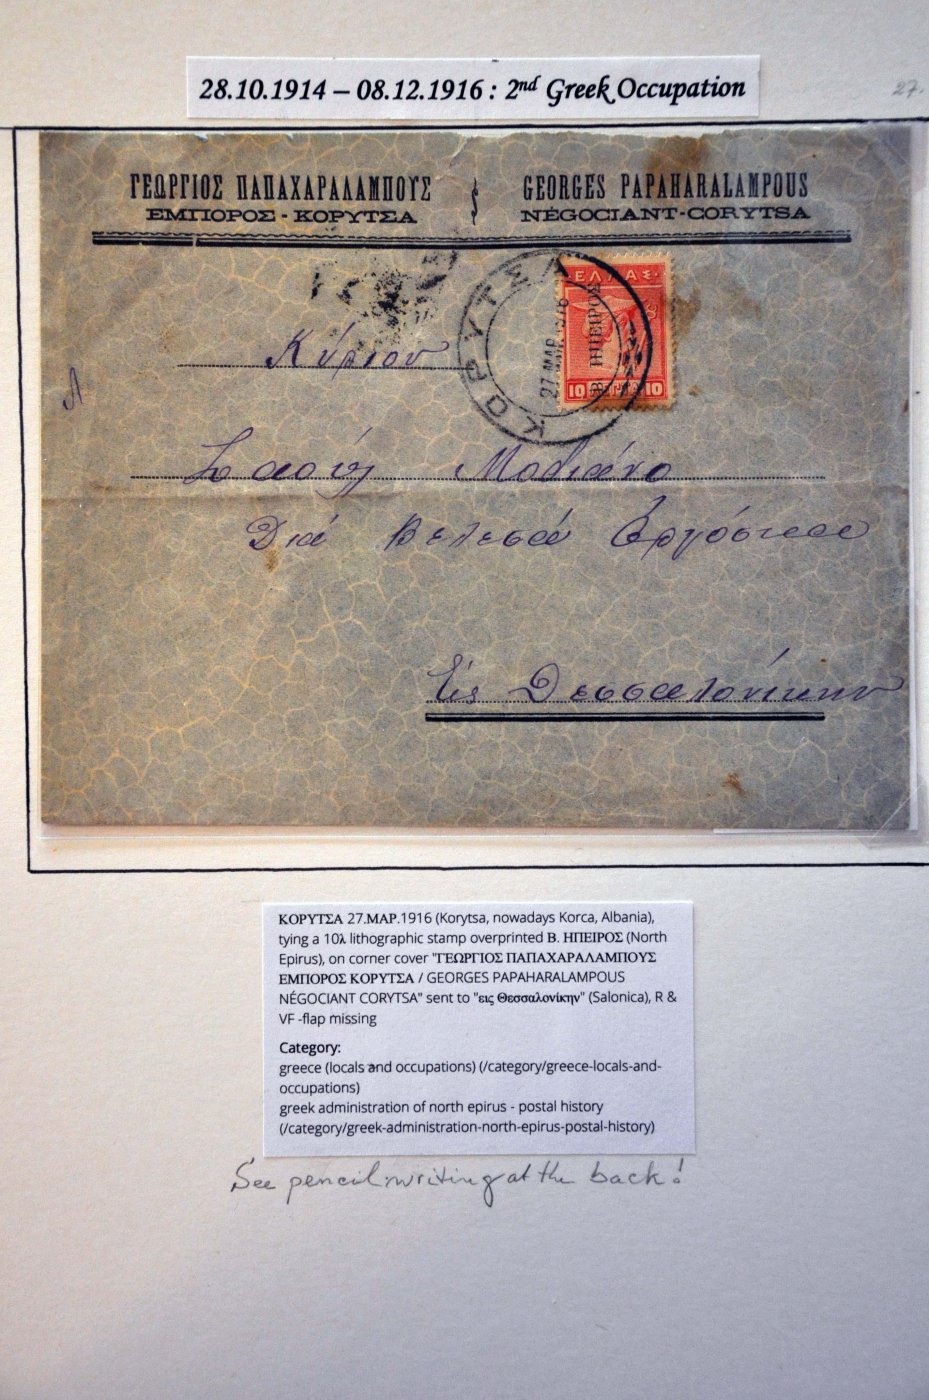 28.10.1914 – 08.12.1916 : 2nd Greek Occupation
27.
ΓΕΩΡΓΙΟΣ ΠΑΠΑΧΑΡΑΛΑΜΠΟΥΣ
ΕΜΠΟΡΟΣ - ΚΟΡΥΤΣΑ
GEORGES PAPAHARALAMPOUS
NÉGOCIANT-CORYTSA
ΚΟΡΥΤΣΑ
27 ΜΑΡ 1916
ΕΛΛΑΣ
Β ΗΠΕΙΡΟΣ
10 10
Κύριον
Σαούλ Μοδιάνο
Διά Βελεσσά
Εἰς Θεσσαλονίκην
ΚΟΡΥΤΣΑ 27.ΜΑΡ.1916 (Korytsa, nowadays Korca, Albania),
tying a 10λ lithographic stamp overprinted Β. ΗΠΕΙΡΟΣ (North
Epirus), on corner cover "ΓΕΩΡΓΙΟΣ ΠΑΠΑΧΑΡΑΛΑΜΠΟΥΣ
ΕΜΠΟΡΟΣ ΚΟΡΥΤΣΑ / GEORGES PAPAHARALAMPOUS
NÉGOCIANT CORYTSA" sent to "εις Θεσσαλονίκην" (Salonica), R &
VF -flap missing
Category:
greece (locals and occupations) (/category/greece-locals-and-
occupations)
greek administration of north epirus - postal history
(/category/greek-administration-north-epirus-postal-history)
See pencil writing at the back!